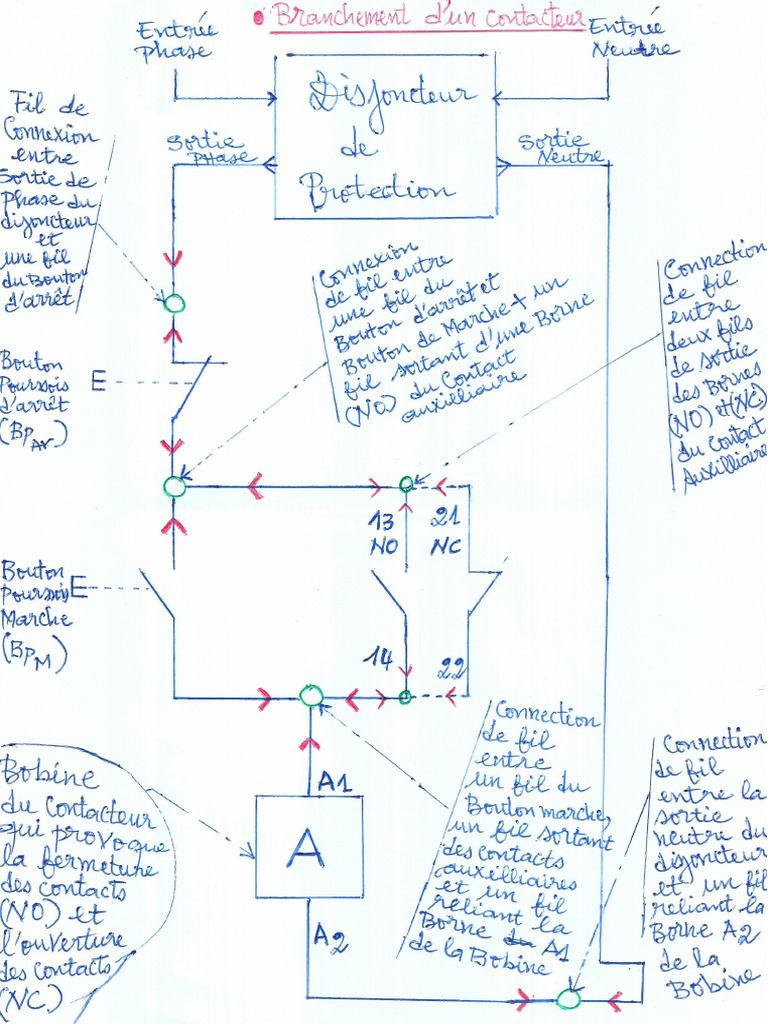 • Branchement d'un contacteur
Entrée
Phase
Entrée
Neutre
Disjoncteur
de
Protection
Sortie
Phase
Sortie
Neutre
Fil de
Connexion
entre
Sortie de
Phase du
disjoncteur
et
une fil
du Bouton
d'arrêt
Connexion
de fil entre
une fil du
Bouton d'arrêt et
Bouton de Marche + un
fil sortant d'une Borne
(NO) du Contact
auxilliaire
Connection
de fil
entre
deux fils
de sortie
des Bornes
(NO) et (NC)
du Contact
Auxilliaire
Bouton
Poussois
d'arrêt
(BPAr)
E
13
NO
21
NC
Bouton
Poussois
Marche
(BPM)
E
14
22
Bobine
du Contacteur
qui provoque
la fermeture
des contacts
(NO) et
l'ouverture
des contacts
(NC.)
A1
A
A2
Connection
de fil
entre
un fil du
Bouton marche,
un fil sortant
des contacts
auxilliaires
et un fil
reliant la
Borne A1
de la Bobine
Connection
de fil
entre la
sortie
neutre du
disjoncteur
et un fil
reliant la
Borne A2
de la
Bobine